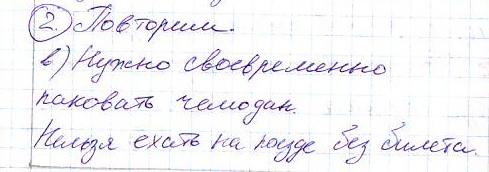 2. Повторим.
в) Нужно своевременно
паковать чемодан.
Нельзя ехать на поезде без билета.